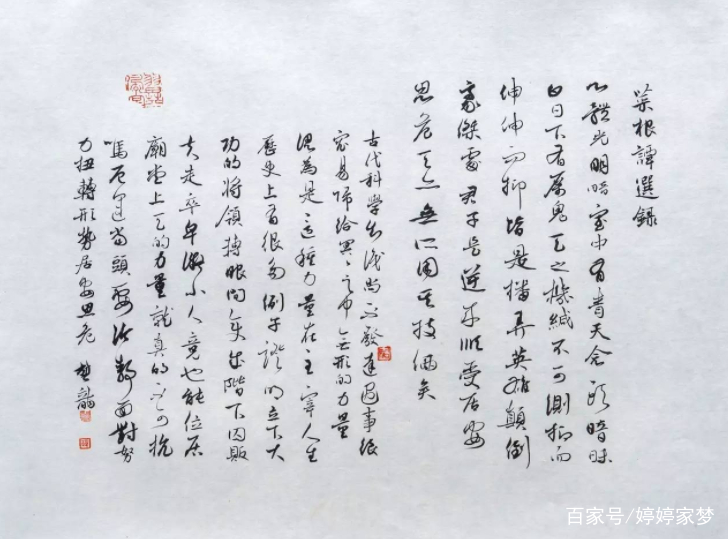 菜根譚選錄
心體光明暗室中有青天念頭暗昧
白日下有厲鬼天之機緘不可測抑而
伸伸而抑皆是播弄英雄顛倒
豪傑處君子是逆來順受居安
思危天亦無所用其技倆矣
古代科學知識尚不發達遇事很
容易歸給冥冥之中無形的力量
認為是這種力量在主宰人生
歷史上有很多例子證明立下大
功的將領轉眼間竟成階下囚販
夫走卒卑微小人竟也能位居
廟堂上天的力量就真的不可抗
嗎厄運當頭要冷靜面對努
力扭轉形勢居安思危
百家号/婷婷家梦